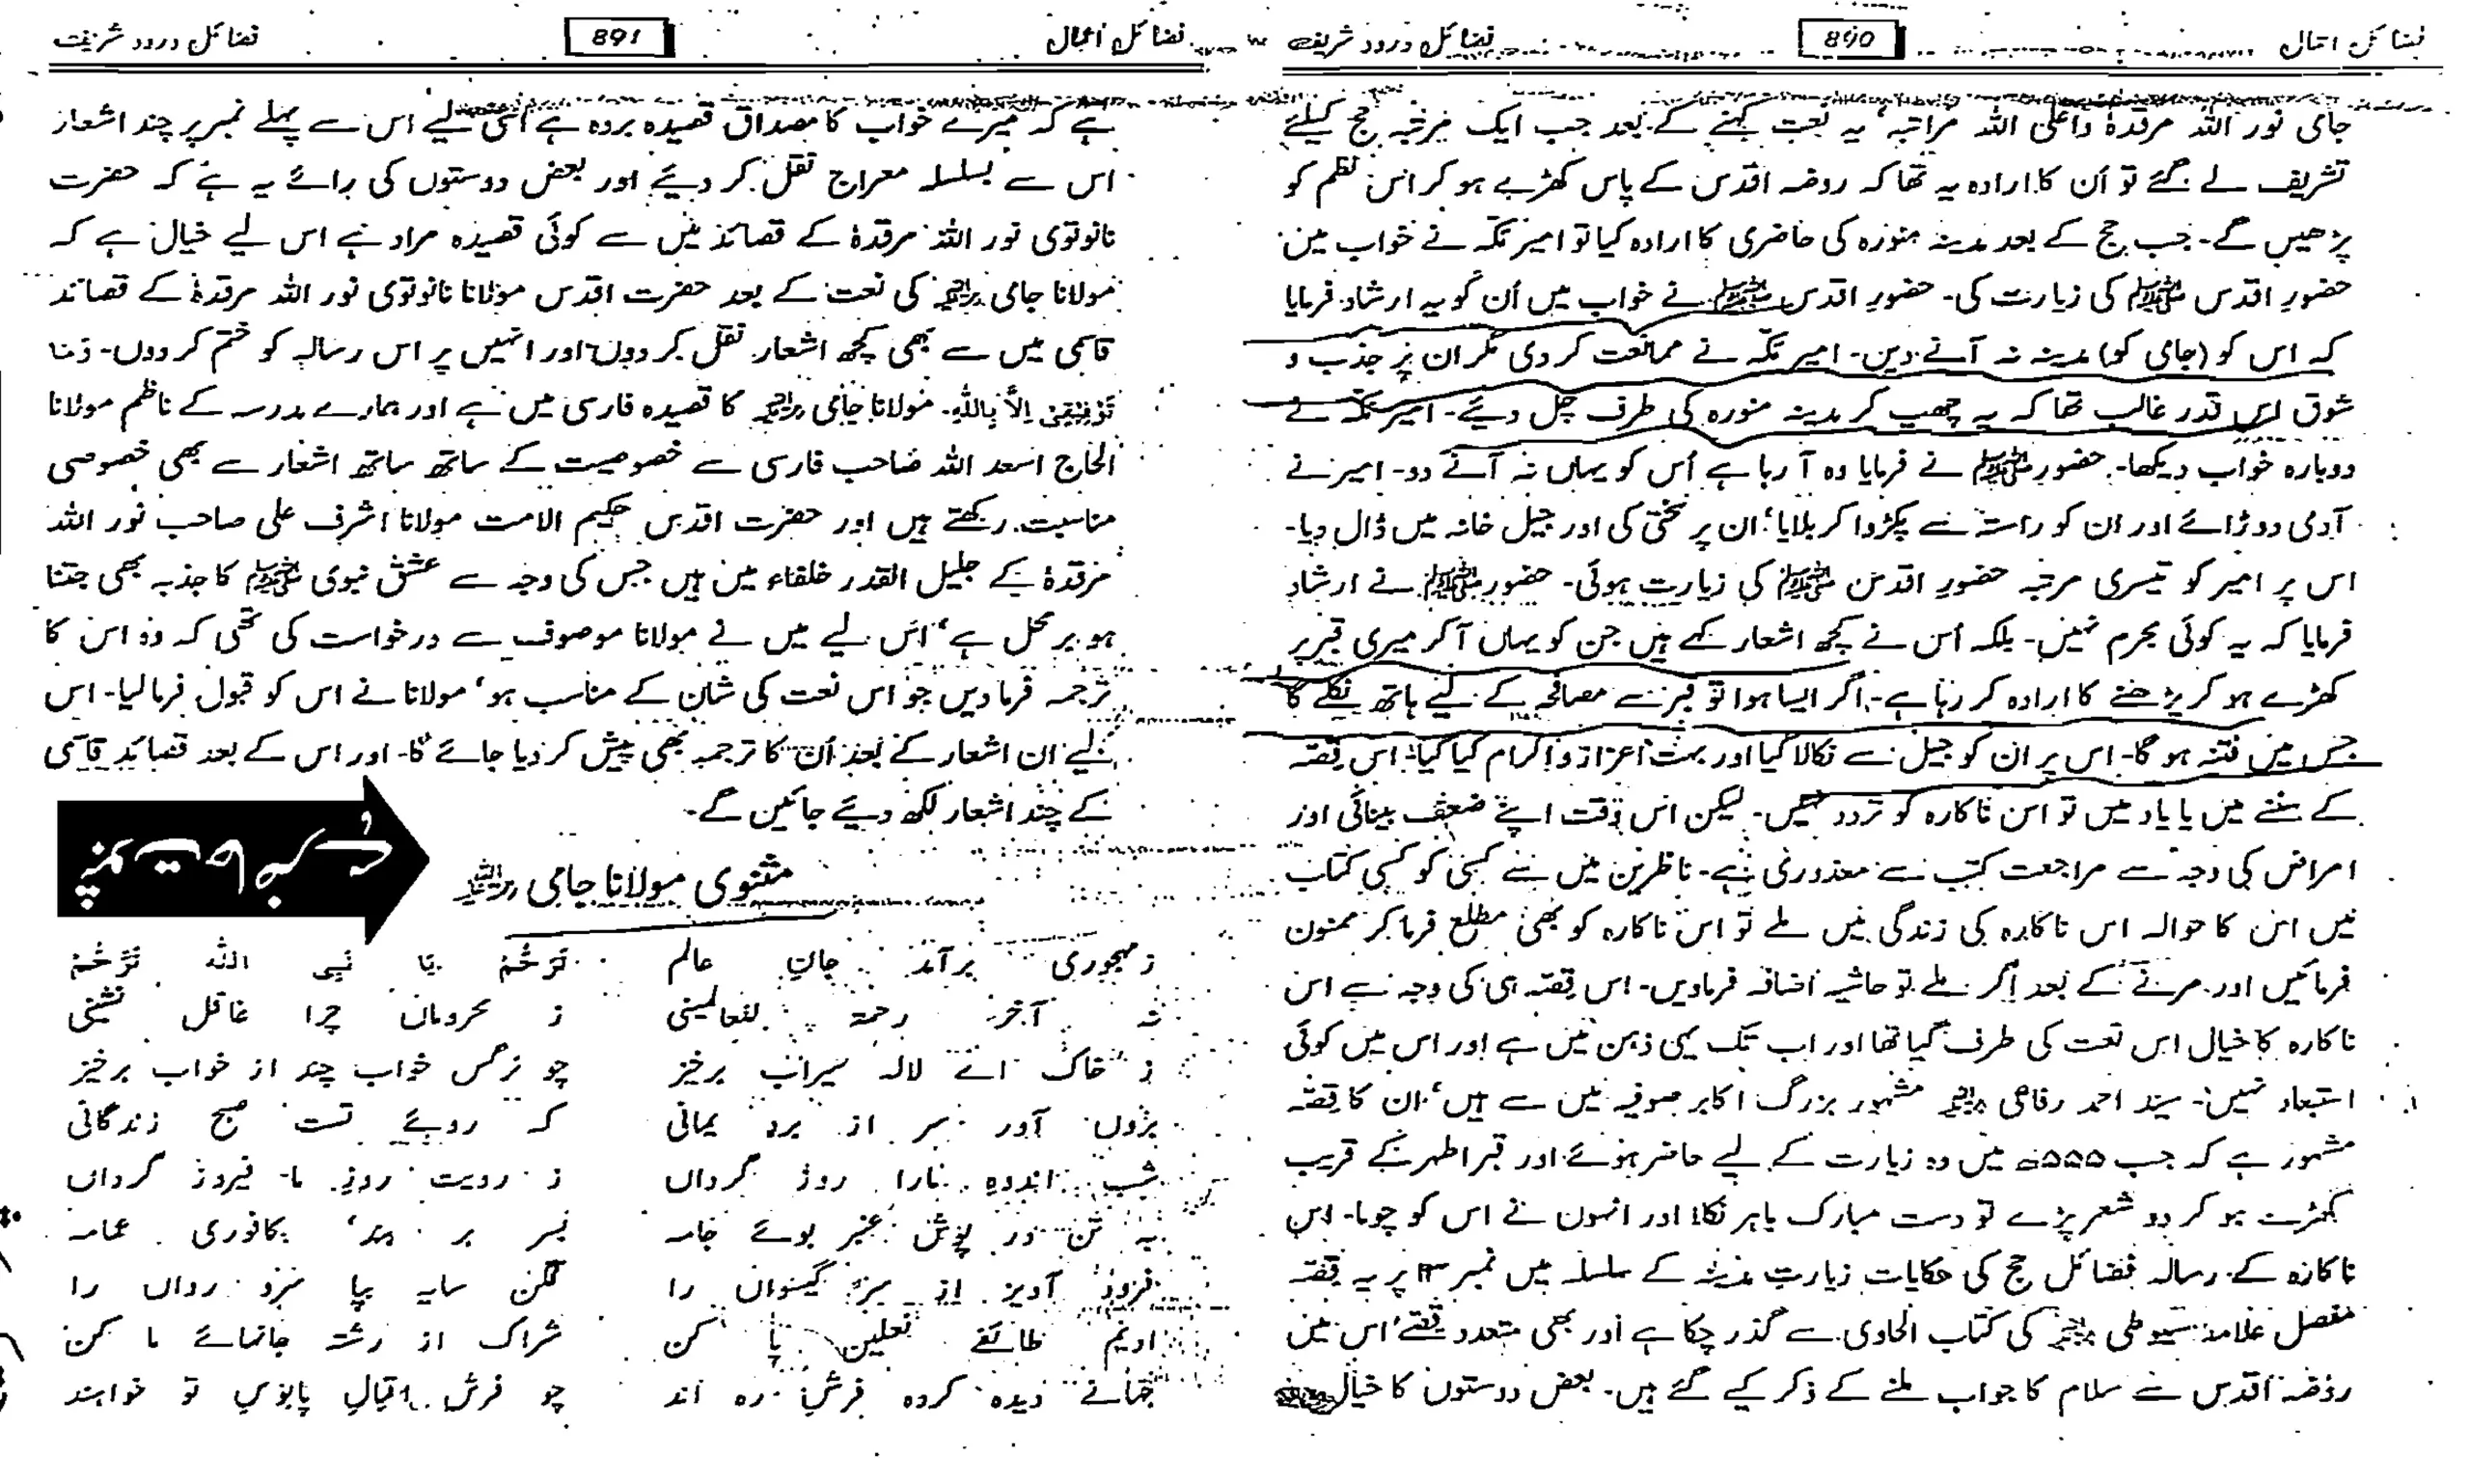 فضائل اعمال 890 فضائل درود شریف
جامی نور اللہ مرقدہٗ واعلی اللہ مراتبہ‘ یہ نعت کہنے کے بعد جب ایک مرتبہ حج کیلئے
تشریف لے گئے تو اُن کا ارادہ یہ تھا کہ روضہ اقدس کے پاس کھڑے ہو کر اس نظم کو
پڑھیں گے۔ جب حج کے بعد مدینہ منورہ کی حاضری کا ارادہ کیا تو امیر مکہ نے خواب میں
حضورِ اقدس ﷺ کی زیارت کی۔ حضورِ اقدس ﷺ نے خواب میں اُن کو یہ ارشاد فرمایا
کہ اس کو (جامی کو) مدینہ نہ آنے دیں۔ امیر مکہ نے ممانعت کر دی مگر ان پر جذب و
شوق اس قدر غالب تھا کہ یہ چھپ کر مدینہ منورہ کی طرف چل دیئے۔ امیر مکہ نے
دوبارہ خواب دیکھا۔ حضور ﷺ نے فرمایا وہ آ رہا ہے اُس کو یہاں نہ آنے دو۔ امیر نے
آدمی دوڑائے اور ان کو راستہ سے پکڑوا کر بلایا‘ ان پر سختی کی اور جیل خانہ میں ڈال دیا۔
اس پر امیر کو تیسری مرتبہ حضورِ اقدس ﷺ کی زیارت ہوئی۔ حضور ﷺ نے ارشاد
فرمایا کہ یہ کوئی مجرم نہیں۔ بلکہ اُس نے کچھ اشعار کہے ہیں جن کو یہاں آ کر میری قبر پر
کھڑے ہو کر پڑھنے کا ارادہ کر رہا ہے۔ اگر ایسا ہوا تو قبر سے مصافحہ کے لیے ہاتھ نکلے گا
جس میں فتنہ ہو گا۔ اس پر ان کو جیل سے نکالا گیا اور بہت اعزاز و اکرام کیا گیا۔ اس قصہ
کے سننے میں یا یاد میں تو اس ناکارہ کو تردد نہیں۔ لیکن اس وقت اپنے ضعف بینائی اور
امراض کی وجہ سے مراجعت کتب سے معذوری ہے۔ ناظرین میں سے کسی کو کسی کتاب
میں اس کا حوالہ اس ناکارہ کی زندگی میں ملے تو اس ناکارہ کو بھی مطلع فرما کر ممنون
فرمائیں اور مرنے کے بعد اگر ملے تو حاشیہ اضافہ فرمادیں۔ اس قصہ ہی کی وجہ سے اس
ناکارہ کا خیال اس نعت کی طرف گیا تھا اور اب تک یہی ذہن میں ہے اور اس میں کوئی
استبعاد نہیں۔ سید احمد رفاعی رحمۃ اللہ علیہ مشہور بزرگ اکابر صوفیہ میں سے ہیں‘ ان کا قصہ
مشہور ہے کہ جب ۵۵۵ھ میں وہ زیارت کے لیے حاضر ہوئے اور قبر اطہر کے قریب
کھڑے ہو کر دو شعر پڑھے تو دست مبارک باہر نکلا اور انہوں نے اس کو چوما۔ اس
ناکارہ کے رسالہ فضائل حج کی حکایات زیارتِ مدینہ کے سلسلہ میں نمبر ۱۳ پر یہ قصہ
مفصل علامہ سیوطی رحمۃ اللہ علیہ کی کتاب الحاوی سے گذر چکا ہے اور بھی متعدد قصے اس میں
روضہ اقدس سے سلام کا جواب ملنے کے ذکر کیے گئے ہیں۔ بعض دوستوں کا خیال
فضائل اعمال 891 فضائل درود شریف
ہے کہ میرے خواب کا مصداق قصیدہ بردہ ہے اسی لیے اس سے پہلے نمبر پر چند اشعار
اس سے بسلسلہ معراج نقل کر دیئے اور بعض دوستوں کی رائے یہ ہے کہ حضرت
نانوتوی نور اللہ مرقدہٗ کے قصائد میں سے کوئی قصیدہ مراد ہے اس لیے خیال ہے کہ
مولانا جامی رحمۃ اللہ علیہ کی نعت کے بعد حضرت اقدس مولانا نانوتوی نور اللہ مرقدہٗ کے قصائد
قاسمی میں سے بھی کچھ اشعار نقل کر دوں اور انہیں پر اس رسالہ کو ختم کر دوں۔ وَمَا
تَوْفِیْقِیْ اِلاَّ بِاللّٰهِ۔ مولانا جامی رحمۃ اللہ علیہ کا قصیدہ فارسی میں ہے اور ہمارے مدرسہ کے ناظم مولانا
الحاج اسعد اللہ صاحب فارسی سے خصوصیت کے ساتھ ساتھ اشعار سے بھی خصوصی
مناسبت رکھتے ہیں اور حضرت اقدس حکیم الامت مولانا اشرف علی صاحب نور اللہ
مرقدہٗ کے جلیل القدر خلفاء میں ہیں جس کی وجہ سے عشق نبوی ﷺ کا جذبہ بھی جتنا
ہو برمحل ہے‘ اس لیے میں نے مولانا موصوف سے درخواست کی تھی کہ وہ اس کا
ترجمہ فرمادیں جو اس نعت کی شان کے مناسب ہو‘ مولانا نے اس کو قبول فرمالیا۔ اس
لیے ان اشعار کے بعد اُن کا ترجمہ بھی پیش کر دیا جائے گا۔ اور اس کے بعد قصائد قاسمی
کے چند اشعار لکھ دیئے جائیں گے۔
مثنوی مولانا جامی رحمۃ اللہ علیہ
زمہجوری برآمد جانِ عالم تَرَحَّمْ یَا نَبِی اللہ تَرَّحَمْ
نہ آخر رحمۃ للعالمینی ز محروماں چرا غافل نشینی
ز خاک اے لالہ سیراب برخیز چو نرگس خواب چند از خواب برخیز
بروں آور سر از برد یمانی کہ روئے تست صبح زندگانی
شب اندوہِ مارا روز گرداں ز رویت روزِ ما فیروز گرداں
بہ تن در پوش عنبر بوئے جامہ بسر بر بند کافوری عمامہ
فرود آویز از سر گیسواں را فگن سایہ بپا سرو رواں را
ادیم طائفے نعلین پا کن شراک از رشتہ جانہائے ما کن
جہانے دیدہ کردہ فرشِ رہ اند چو فرش اقبالِ پابوسِ تو خواہند